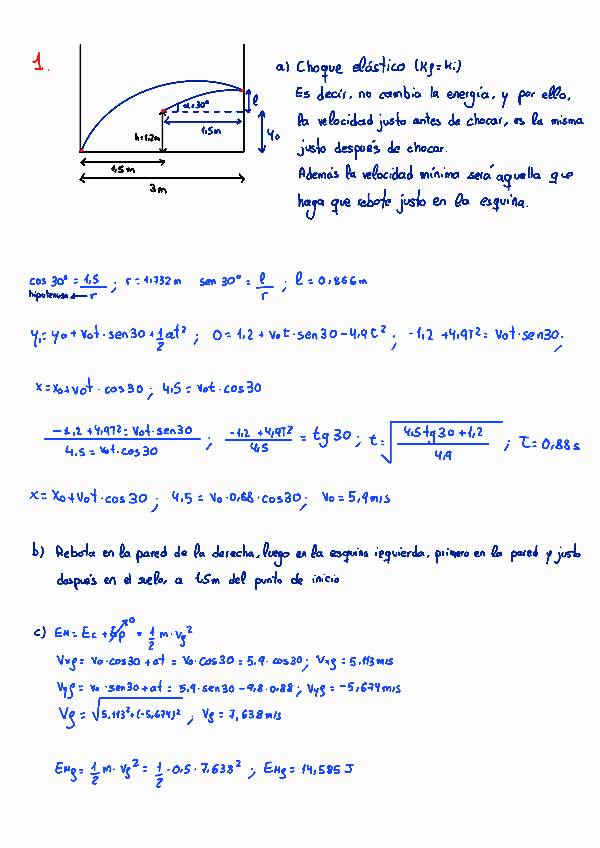 1.
α=30°
l
h=1,2m
1,5m
y₀
1,5m
3m
a) Choque elástico (Kf=Ki)
Es decir, no cambia la energía, y por ello,
la velocidad justo antes de chocar, es la misma
justo después de chocar.
Además la velocidad mínima será aquella que
haga que rebote justo en la esquina.
cos 30° = 1,5/r ; r = 1,732 m   sen 30° = l/r ; l = 0,866 m
hipotenusa
y₁ = y₀ + v₀t · sen30 + 1/2 at² ; 0 = 1,2 + v₀t · sen30 - 4,9t² ; -1,2 + 4,9t² = v₀t · sen30.
x = x₀ + v₀t · cos30 ; 4,5 = v₀t · cos30
-1,2 + 4,9t² = v₀t · sen30 / 4,5 = v₀t · cos30 ; -1,2 + 4,9t² / 4,5 = tg 30 ; t = √(4,5 tg 30 + 1,2 / 4,9) ; t = 0,88 s
x = x₀ + v₀t · cos30 ; 4,5 = v₀ · 0,88 · cos30 ; v₀ = 5,9 m/s
b) Rebota en la pared de la derecha, luego en la esquina izquierda, primero en la pared y justo
después en el suelo, a 1,5m del punto de inicio
c) EM = Ec + Ep⁰ = 1/2 m · vf²
Vxf = v₀ · cos30 + at = v₀ · cos30 = 5,9 · cos30 ; Vxf = 5,113 m/s
Vyf = v₀ · sen30 + at = 5,9 · sen30 - 9,8 · 0,88 ; Vyf = -5,674 m/s
Vf = √(5,113² + (-5,674)²) ; Vf = 7,638 m/s
EMf = 1/2 m · vf² = 1/2 · 0,5 · 7,638² ; EMf = 14,585 J